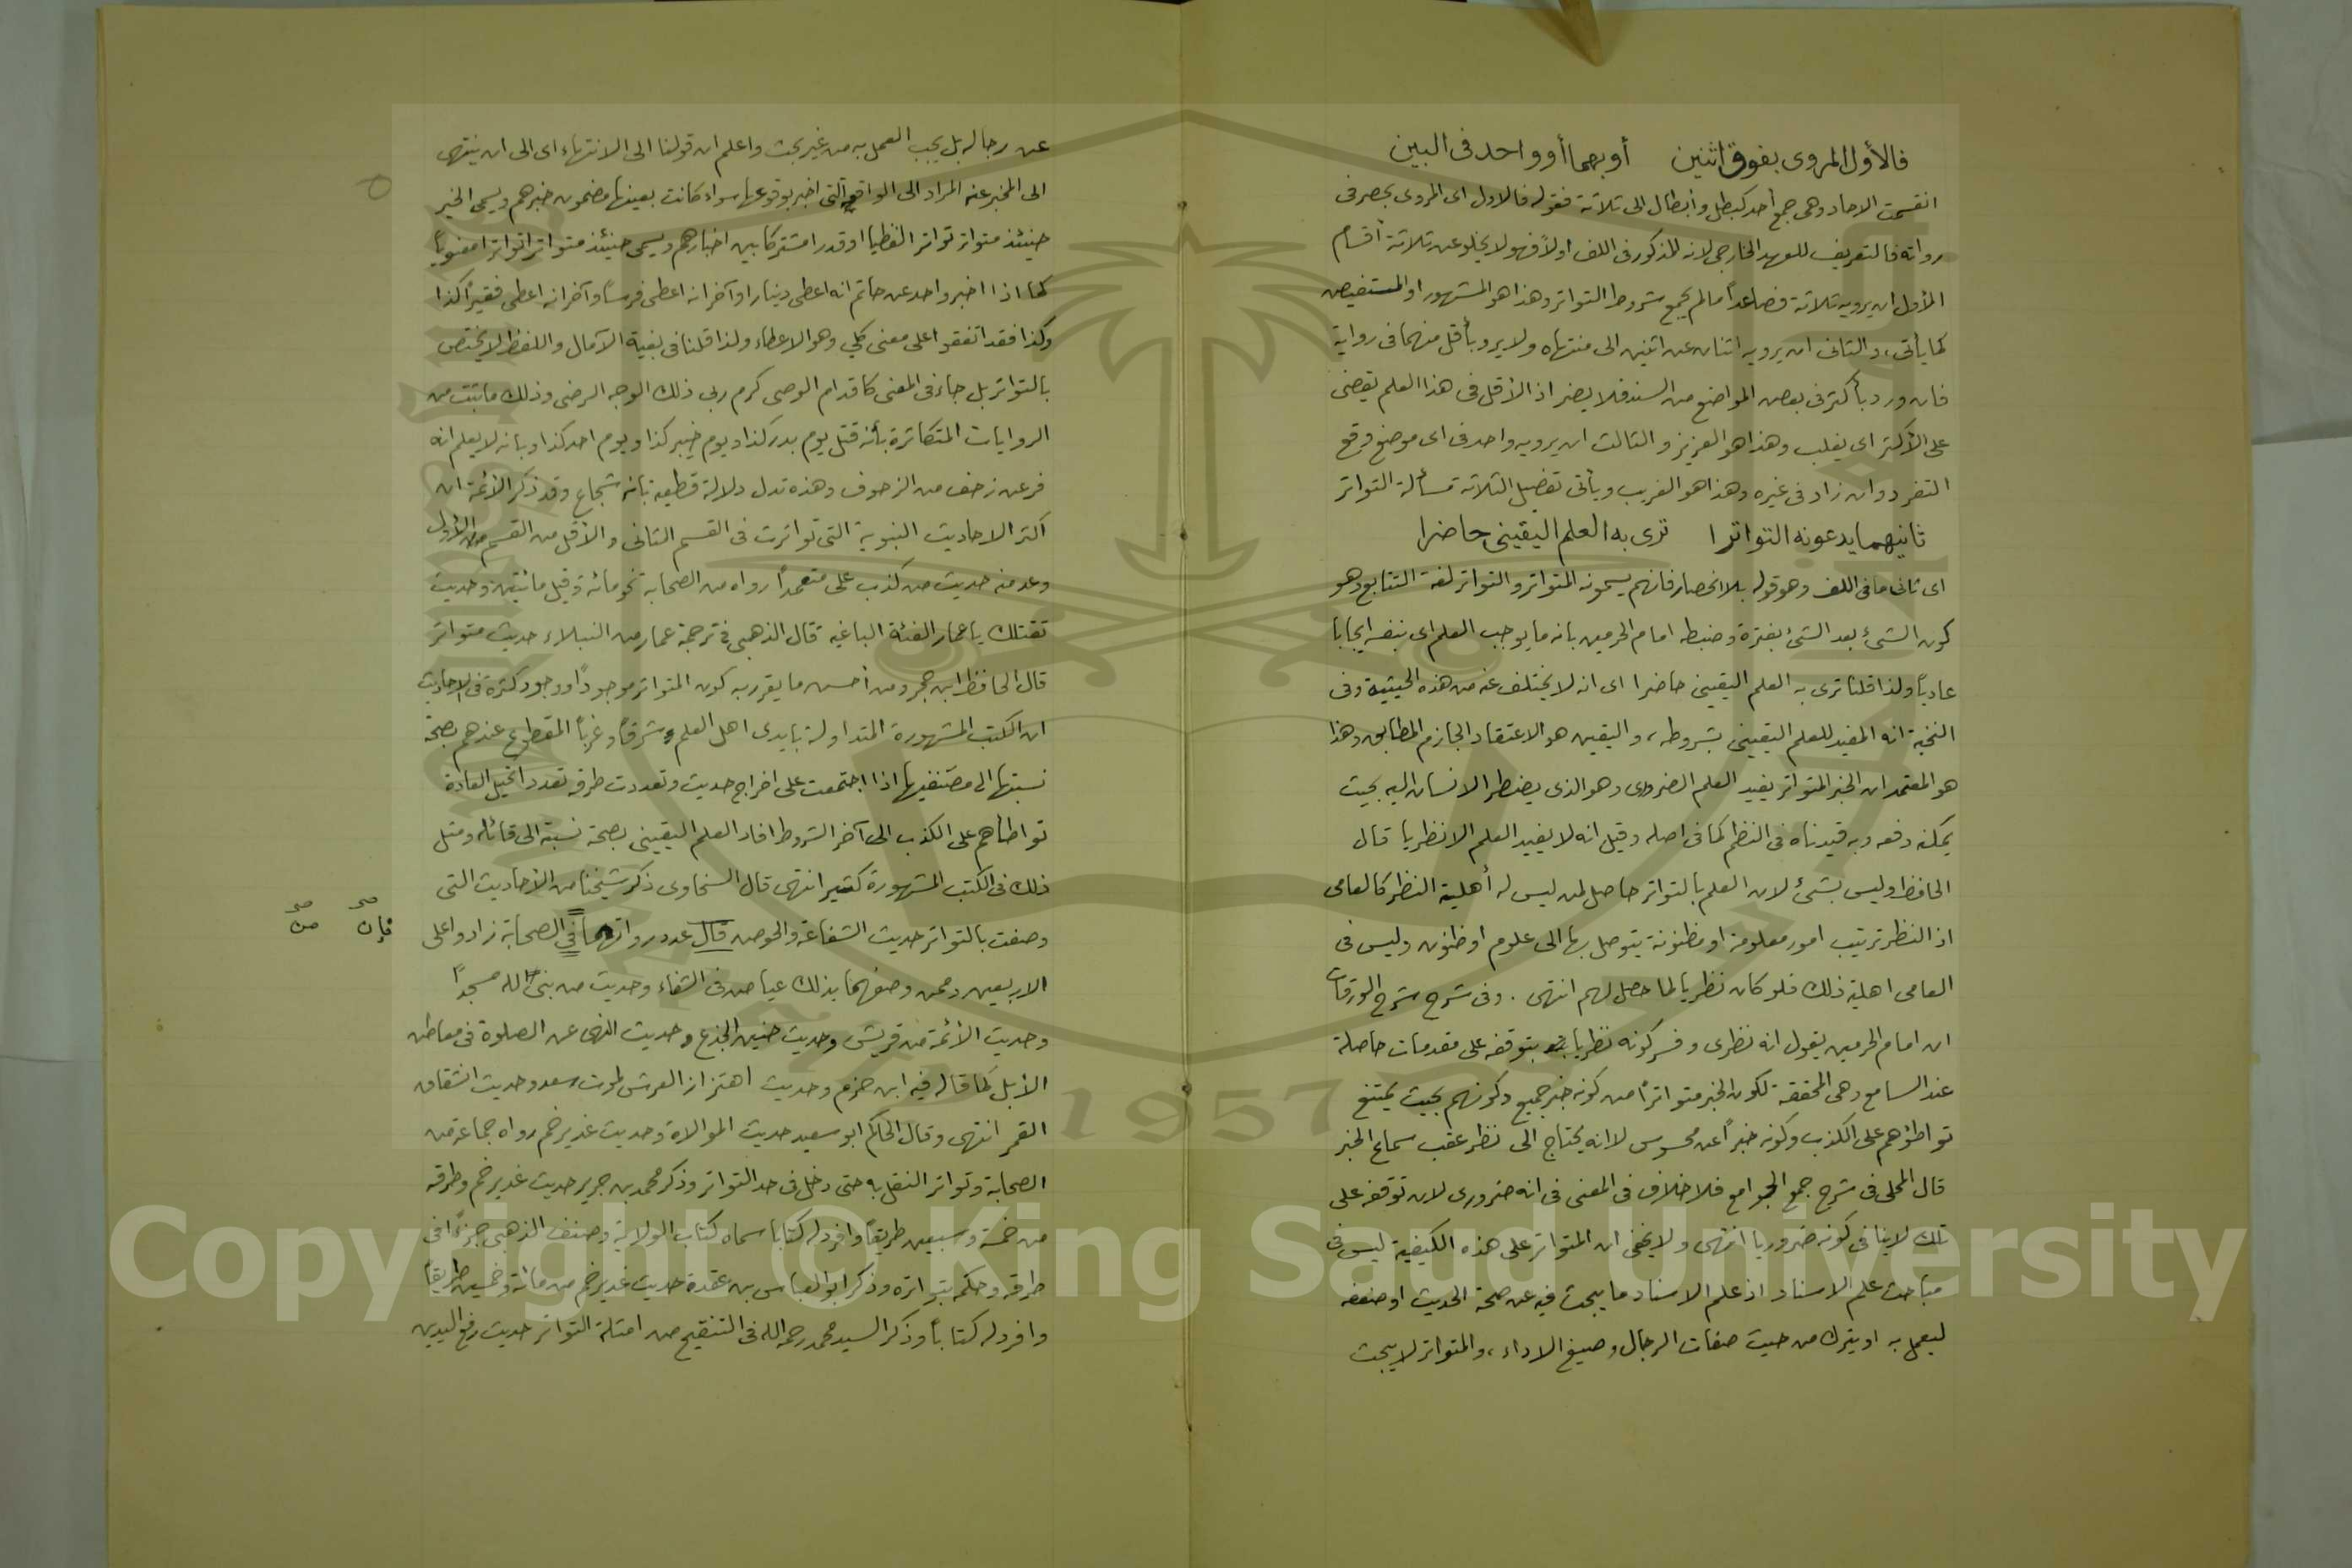 فالأول المروى بفوق اثنين أو بهما أو واحد فى البين
انقسمت الاحاد وهى جمع أحد كبطل وأبطال الى ثلاثة فقوله فالاول اى المروى بحصر فى
رواته فالتعريف للعهد الخارجى لانه المذكور فى اللف اولاً فهو لا يخلو عن ثلاثة أقسام
الأول ان يرويه ثلاثة فصاعداً مالم يجمع شروط التواتر وهذا هو المشهور او المستفيض
كما يأتى، والثانى ان يرويه اثنان عن اثنين الى منتهاه ولا يرو بأقل منهما فى رواية
فان ورد بأكثر فى بعض المواضع من السند فلا يضر اذ الأقل فى هذا العلم يقضى
على الأكثر اى يغلب وهذا هو العزيز والثالث ان يرويه واحد فى اى موضع وقع
التفرد وان زاد فى غيره وهذا هو الغريب ويأتى تفصيل الثلاثة مسألة التواتر
ثانيهما يدعونه التواترا ترى به العلم اليقينى حاضرا
اى ثانى ما فى اللف وهو قوله بلا انحصار فانهم يسمونه المتواتر والتواتر لغة التتابع وهو
كون الشئ بعد الشئ بفترة وضبطه امام الحرمين بانه ما يوجب العلم اى بنفسه ايجابا
عادياً ولذا قلنا ترى به العلم اليقينى حاضرا اى انه لا يختلف عنه من هذه الحيثية وفى
النخبة انه المفيد للعلم اليقينى بشروطه، واليقين هو الاعتقاد الجازم المطابق وهذا
هو المعتمد ان الخبر المتواتر يفيد العلم الضرورى وهو الذى يضطر الانسان اليه بحيث
يمكنه دفعه وبه قيدناه فى النظم كما فى اصله وقيل انه لا يفيد العلم الا نظريا قال
الحافظ وليس بشئ لان العلم بالتواتر حاصل لمن ليس له أهلية النظر كالعامى
اذ النظر ترتيب امور معلومة او مظنونة يتوصل بها الى علوم او ظنون وليس فى
العامى اهلية ذلك فلو كان نظريا لما حصل لهم انتهى . وفى شرح شرح الورقات
ان امام الحرمين يقول انه نظرى وفسر كونه نظريا بتوقفه على مقدمات حاصلة
عند السامع وهى المحققة لكون الخبر متواتراً من كونه خبر جميع وكونهم بحيث يمتنع
تواطؤهم على الكذب وكونه خبراً عن محسوس لا انه يحتاج الى نظر عقب سماع الخبر
قال المحلى فى شرح جمع الجوامع فلا خلاف فى المعنى فى انه ضرورى لان توقفه على
تلك لا ينافى كونه ضروريا انتهى ولا يخفى ان المتواتر على هذه الكيفية ليس فى
مباحث علم الاسناد اذ علم الاسناد ما يبحث فيه عن صحة الحديث او ضعفه
ليعمل به او يترك من حيث صفات الرجال وصيغ الاداء، والمتواتر لا يبحث
عن رجاله بل يجب العمل به من غير بحث واعلم ان قولنا الى الانتهاء اى الى ان ينتهى
الى المخبر عنه المراد الى الواقع التى اخبر بوقوعها سواء كانت بعينها مضمون خبرهم ويسمى الخبر
حينئذ متواتر تواتر الفظيا او قدرا مشتركا بين اخبارهم ويسمى حينئذ متواترا تواترا معنوياً
كما اذا اخبر واحد عن حاتم انه اعطى دينارا وآخر انه اعطى فرساً وآخر انه اعطى فقيراً كذا
وكذا فقد اتفقوا على معنى كلي وهو الاعطاء ولذا قلنا فى بغية الآمال واللفظ لا يختص
بالتواتر بل جاء فى المعنى كاقدام الوصى كرم ربى ذلك الوجه الرضى وذلك ما ثبت من
الروايات المتكاثرة بأنه قتل يوم بدر كذا ويوم خيبر كذا ويوم احد كذا وبانه لا يعلم انه
فر عن زحف من الزحوف وهذه تدل دلالة قطعية بانه شجاع وقد ذكر الأئمة ان
اكثر الاحاديث النبوية التى تواترت فى القسم الثانى والأقل من القسم الأول
وعد منه حديث من كذب على متعمداً رواه من الصحابة نحو مائة وقيل مائتين وحديث
تقتلك يا عمار الفئة الباغية قال الذهبى فى ترجمة عمار من النبلاء حديث متواتر
قال الحافظ ابن حجر ومن أحسن ما يقرر به كون المتواتر موجوداً ووجود كثرة فى الاحاديث
ان الكتب المشهورة المتداولة بايدى اهل العلم شرقاً وغرباً المقطوع عندهم بصحة
نسبتها الى مصنفيها اذا اجتمعت على اخراج حديث وتعددت طرقه تعدداً تحيل العادة
تواطأهم على الكذب الى آخر الشروط افاد العلم اليقينى بصحة نسبته الى قائله ومثل
ذلك فى الكتب المشهورة كثير انتهى قال السخاوى ذكر شيخنا من الأحاديث التى
وصفت بالتواتر حديث الشفاعة والحوض قال عدد رواتهما فى الصحابة زادوا على
فإن صح
من صح
الاربعين وممن وصفهما بذلك عياض فى الشفاء وحديث من بنى لله مسجداً
وحديث الأئمة من قريش وحديث حنين الجذع وحديث النهى عن الصلوة فى معاطن
الأبل كما قاله فيه ابن حزم وحديث اهتزاز العرش لموت سعد وحديث انشقاق
القمر انتهى وقال الحاكم ابو سعيد حديث الموالاة وحديث غدير خم رواه جماعة من
الصحابة وتواتر النقل به حتى دخل فى حد التواتر وذكر محمد بن جرير حديث غدير خم وطرقه
من خمسة وسبعين طريقاً وافرد له كتابا سماه كتاب الولاية وصنف الذهبى جزءاً فى
طرقه وحكم بتواتره وذكر ابو العباس بن عقدة حديث غدير خم من مائة وخمسين طريقاً
وافرد له كتاباً وذكر السيد محمد رحمه الله فى التنقيح من امثلة التواتر حديث رفع اليدين
1957
Copyright © King Saud University